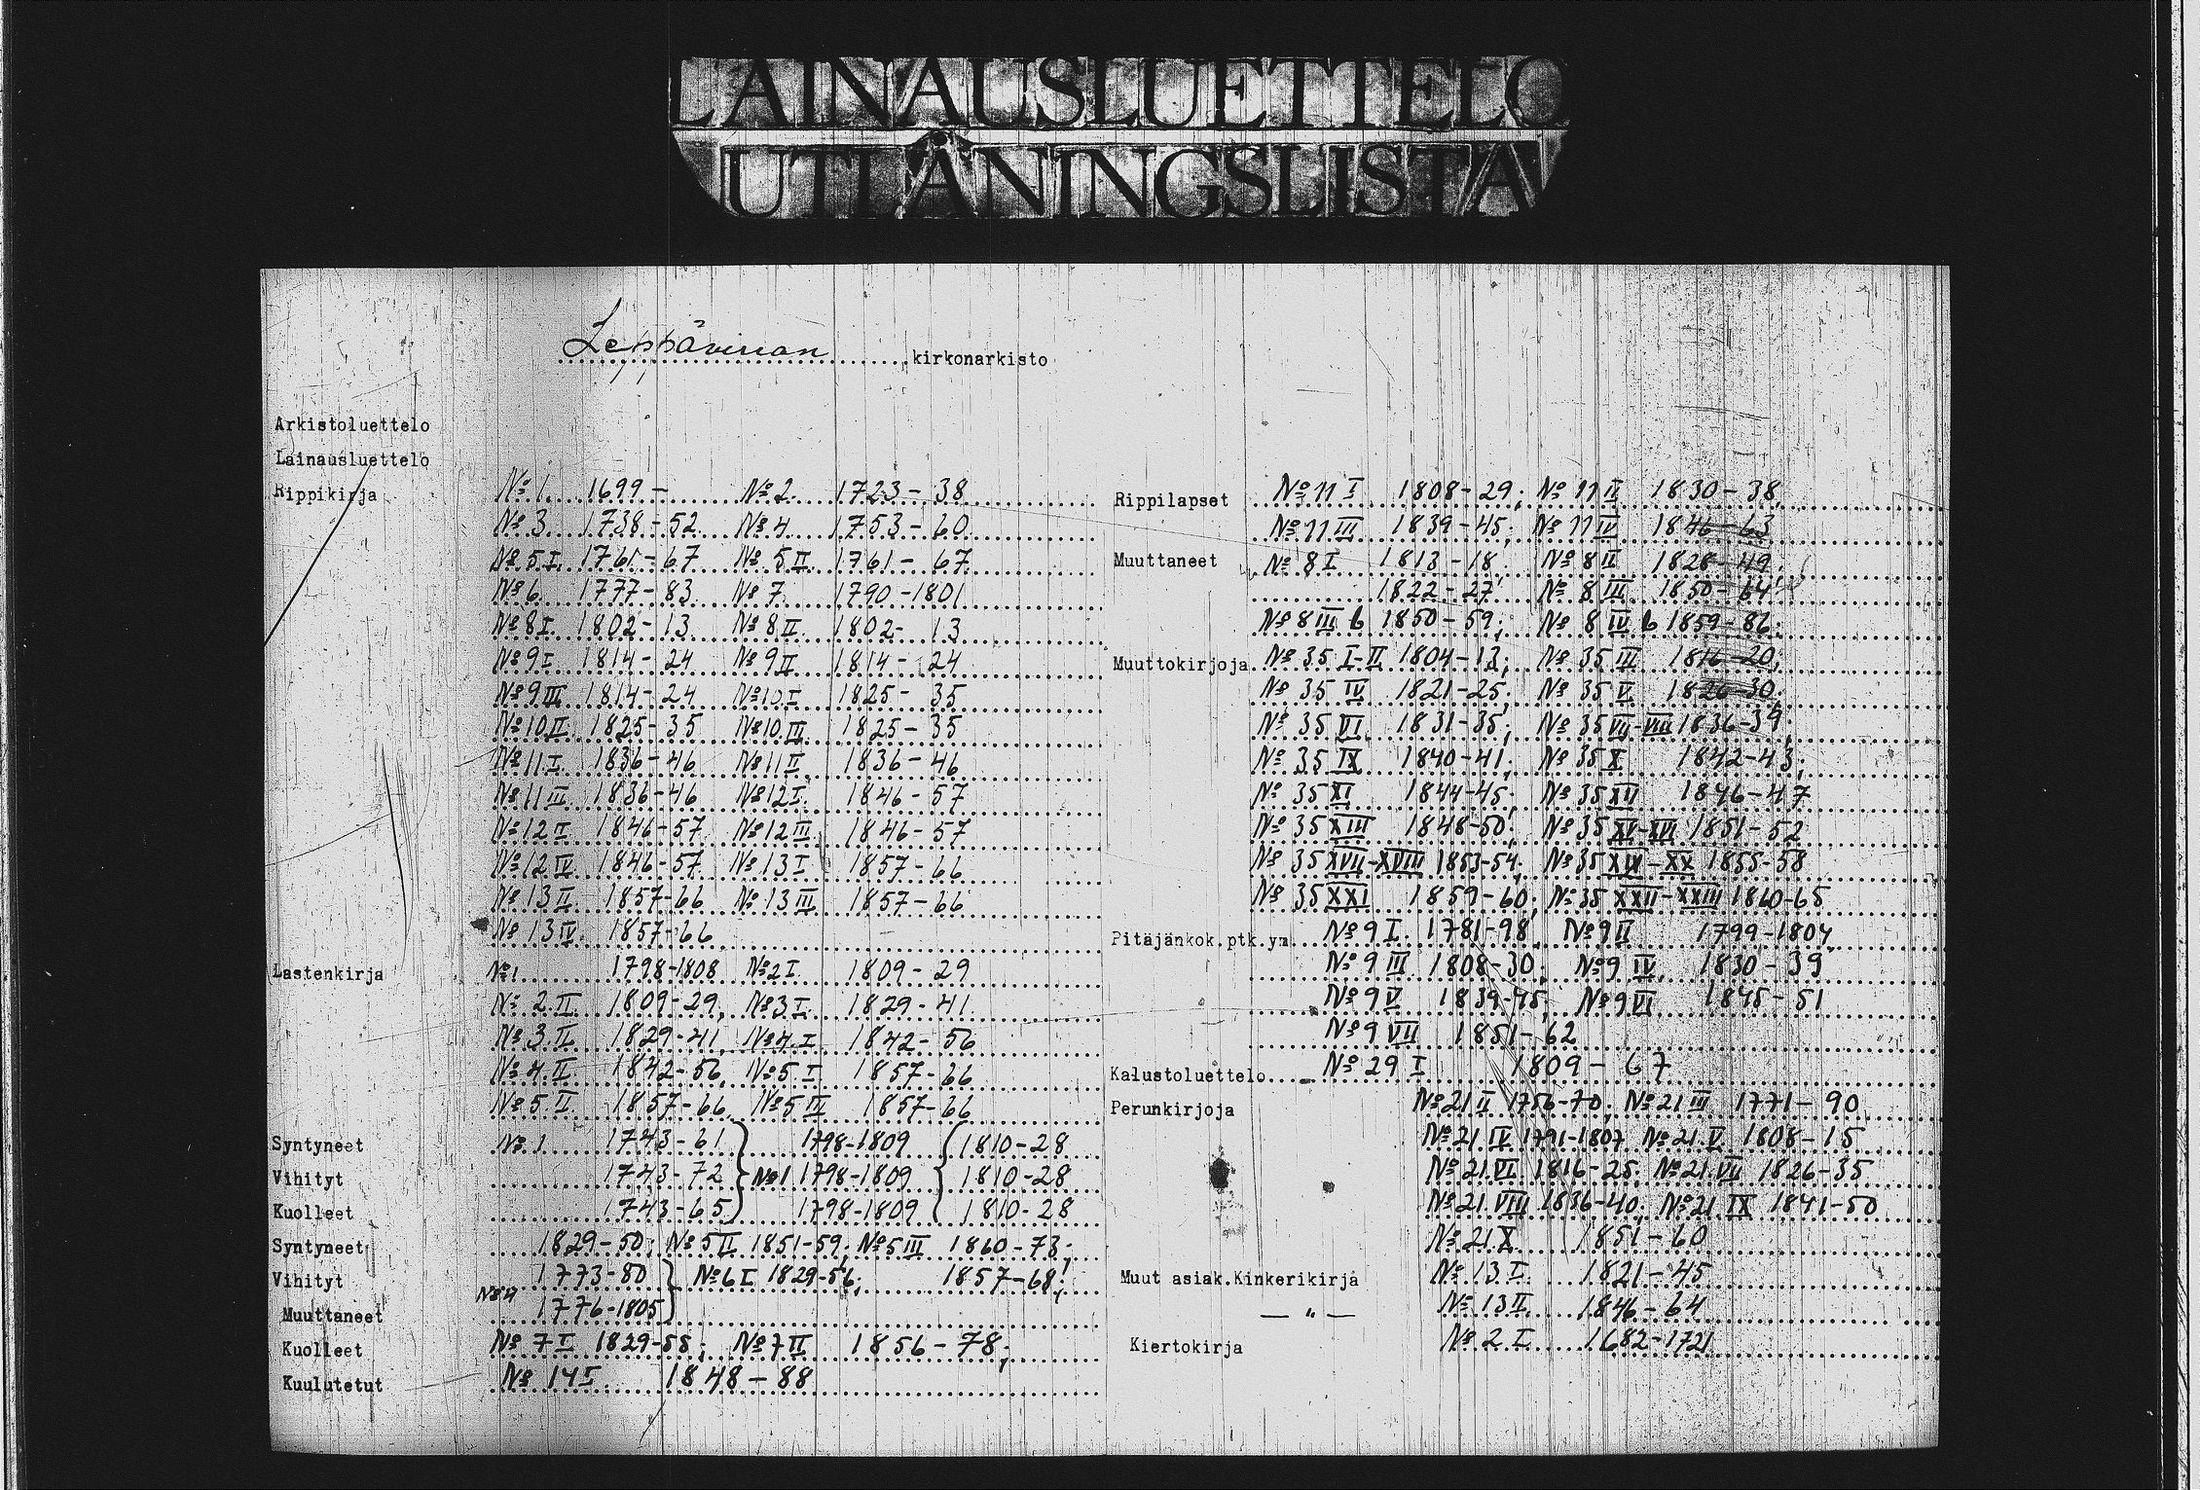 LAINAUSLUETTELO
UTLÅNINGSLISTA
Leppävirran kirkonarkisto
Arkistoluettelo
Lainausluettelo
Rippikirja № 1. 1699 - № 2. 1723 - 38
№ 3. 1738 - 52. № 4 1753 - 60.
№ 5 I. 1761 - 67 № 5 II 1761 - 67.
№ 6. 1777 - 83. № 7. 1790 - 1801
№ 8 I. 1802 - 13 № 8 II 1802 - 13
№ 9 I 1814 - 24 № 9 II 1814 - 24
№ 9 III 1814 - 24 № 10 I 1825 - 35
№ 10 II 1825 - 35 № 10 III 1825 - 35
№ 11 I 1836 - 46 № 11 II 1836 - 46
№ 11 III 1836 - 46 № 12 I. 1846 - 57
№ 12 II 1846 - 57. № 12 III 1846 - 57
№ 12 IV 1846 - 57. № 13 I 1857 - 66
№ 13 II 1857 - 66 № 13 III 1857 - 66
№ 13 IV. 1857 - 66
Lastenkirja № 1 1798-1808 № 2 I. 1809 - 29
№ 2 II 1809 - 29, № 3 I. 1829 - 41
№ 3 II 1829 - 41, № 4 I 1842 - 56
№ 4 II 1842 - 56, № 5 I 1857 - 66
№ 5 II 1857 - 66, № 5 III 1857 - 66
Syntyneet № 1 1743 - 61 1798-1809 1810 - 28
Vihityt 1743 - 72 № 1 1798-1809 1810 - 28
Kuolleet 1743 - 65 1798-1809 1810 - 28
Syntyneet 1829 - 50; № 5 II 1851 - 59; № 5 III 1860 - 73;
Vihityt 1773 - 80 № 6 I 1829 - 56; 1857 - 68;
Muuttaneet № 4 1776 - 1805
Kuolleet № 7 I 1829 - 55; № 7 II 1856 - 78;
Kuulutetut № 14 I 1848 - 88
Rippilapset № 11 I 1808 - 29; № 11 II 1830 - 38,
№ 11 III 1839 - 45; № 11 IV 1846 - 63
Muuttaneet № 8 I 1813 - 18; № 8 II 1828 - 49;
1822 - 27; № 8 III 1850 - 64
№ 8 III b 1850 - 59; № 8 IV b 1859 - 86;
Muuttokirjoja № 35 I-II 1804 - 13; № 35 III 1816 - 20;
№ 35 IV 1821 - 25; № 35 V 1826 - 30;
№ 35 VI 1831 - 35; № 35 VII-VIII 1836 - 39,
№ 35 IX 1840 - 41; № 35 X 1842 - 43;
№ 35 XI 1844 - 45; № 35 XII 1846 - 47
№ 35 XIII 1848 - 50; № 35 XV-XVI 1851 - 52
№ 35 XVII-XVIII 1853 - 54; № 35 XIX-XX 1855 - 58
№ 35 XXI 1859 - 60; № 35 XXII-XXIII 1860 - 65
Pitäjänkok.ptk.ym. № 9 I. 1781 - 98, № 9 II 1799 - 1804
№ 9 III 1808 - 30; № 9 IV. 1830 - 39
№ 9 V 1839 - 45, № 9 VI 1845 - 51
№ 9 VII 1851 - 62
Kalustoluettelo № 29 I 1809 - 67
Perunkirjoja № 21 II 1756 - 70; № 21 III 1771 - 90
№ 21 IV 1791 - 1807 № 21 V 1808 - 15
№ 21 VI 1816 - 25; № 21 VII 1826 - 35
№ 21 VIII 1836 - 40; № 21 IX 1841 - 50
№ 21 X 1851 - 60
Muut asiak.Kinkerikirja № 13 I 1821 - 45
— " — № 13 II 1846 - 64
Kiertokirja № 2 I 1682 - 1721